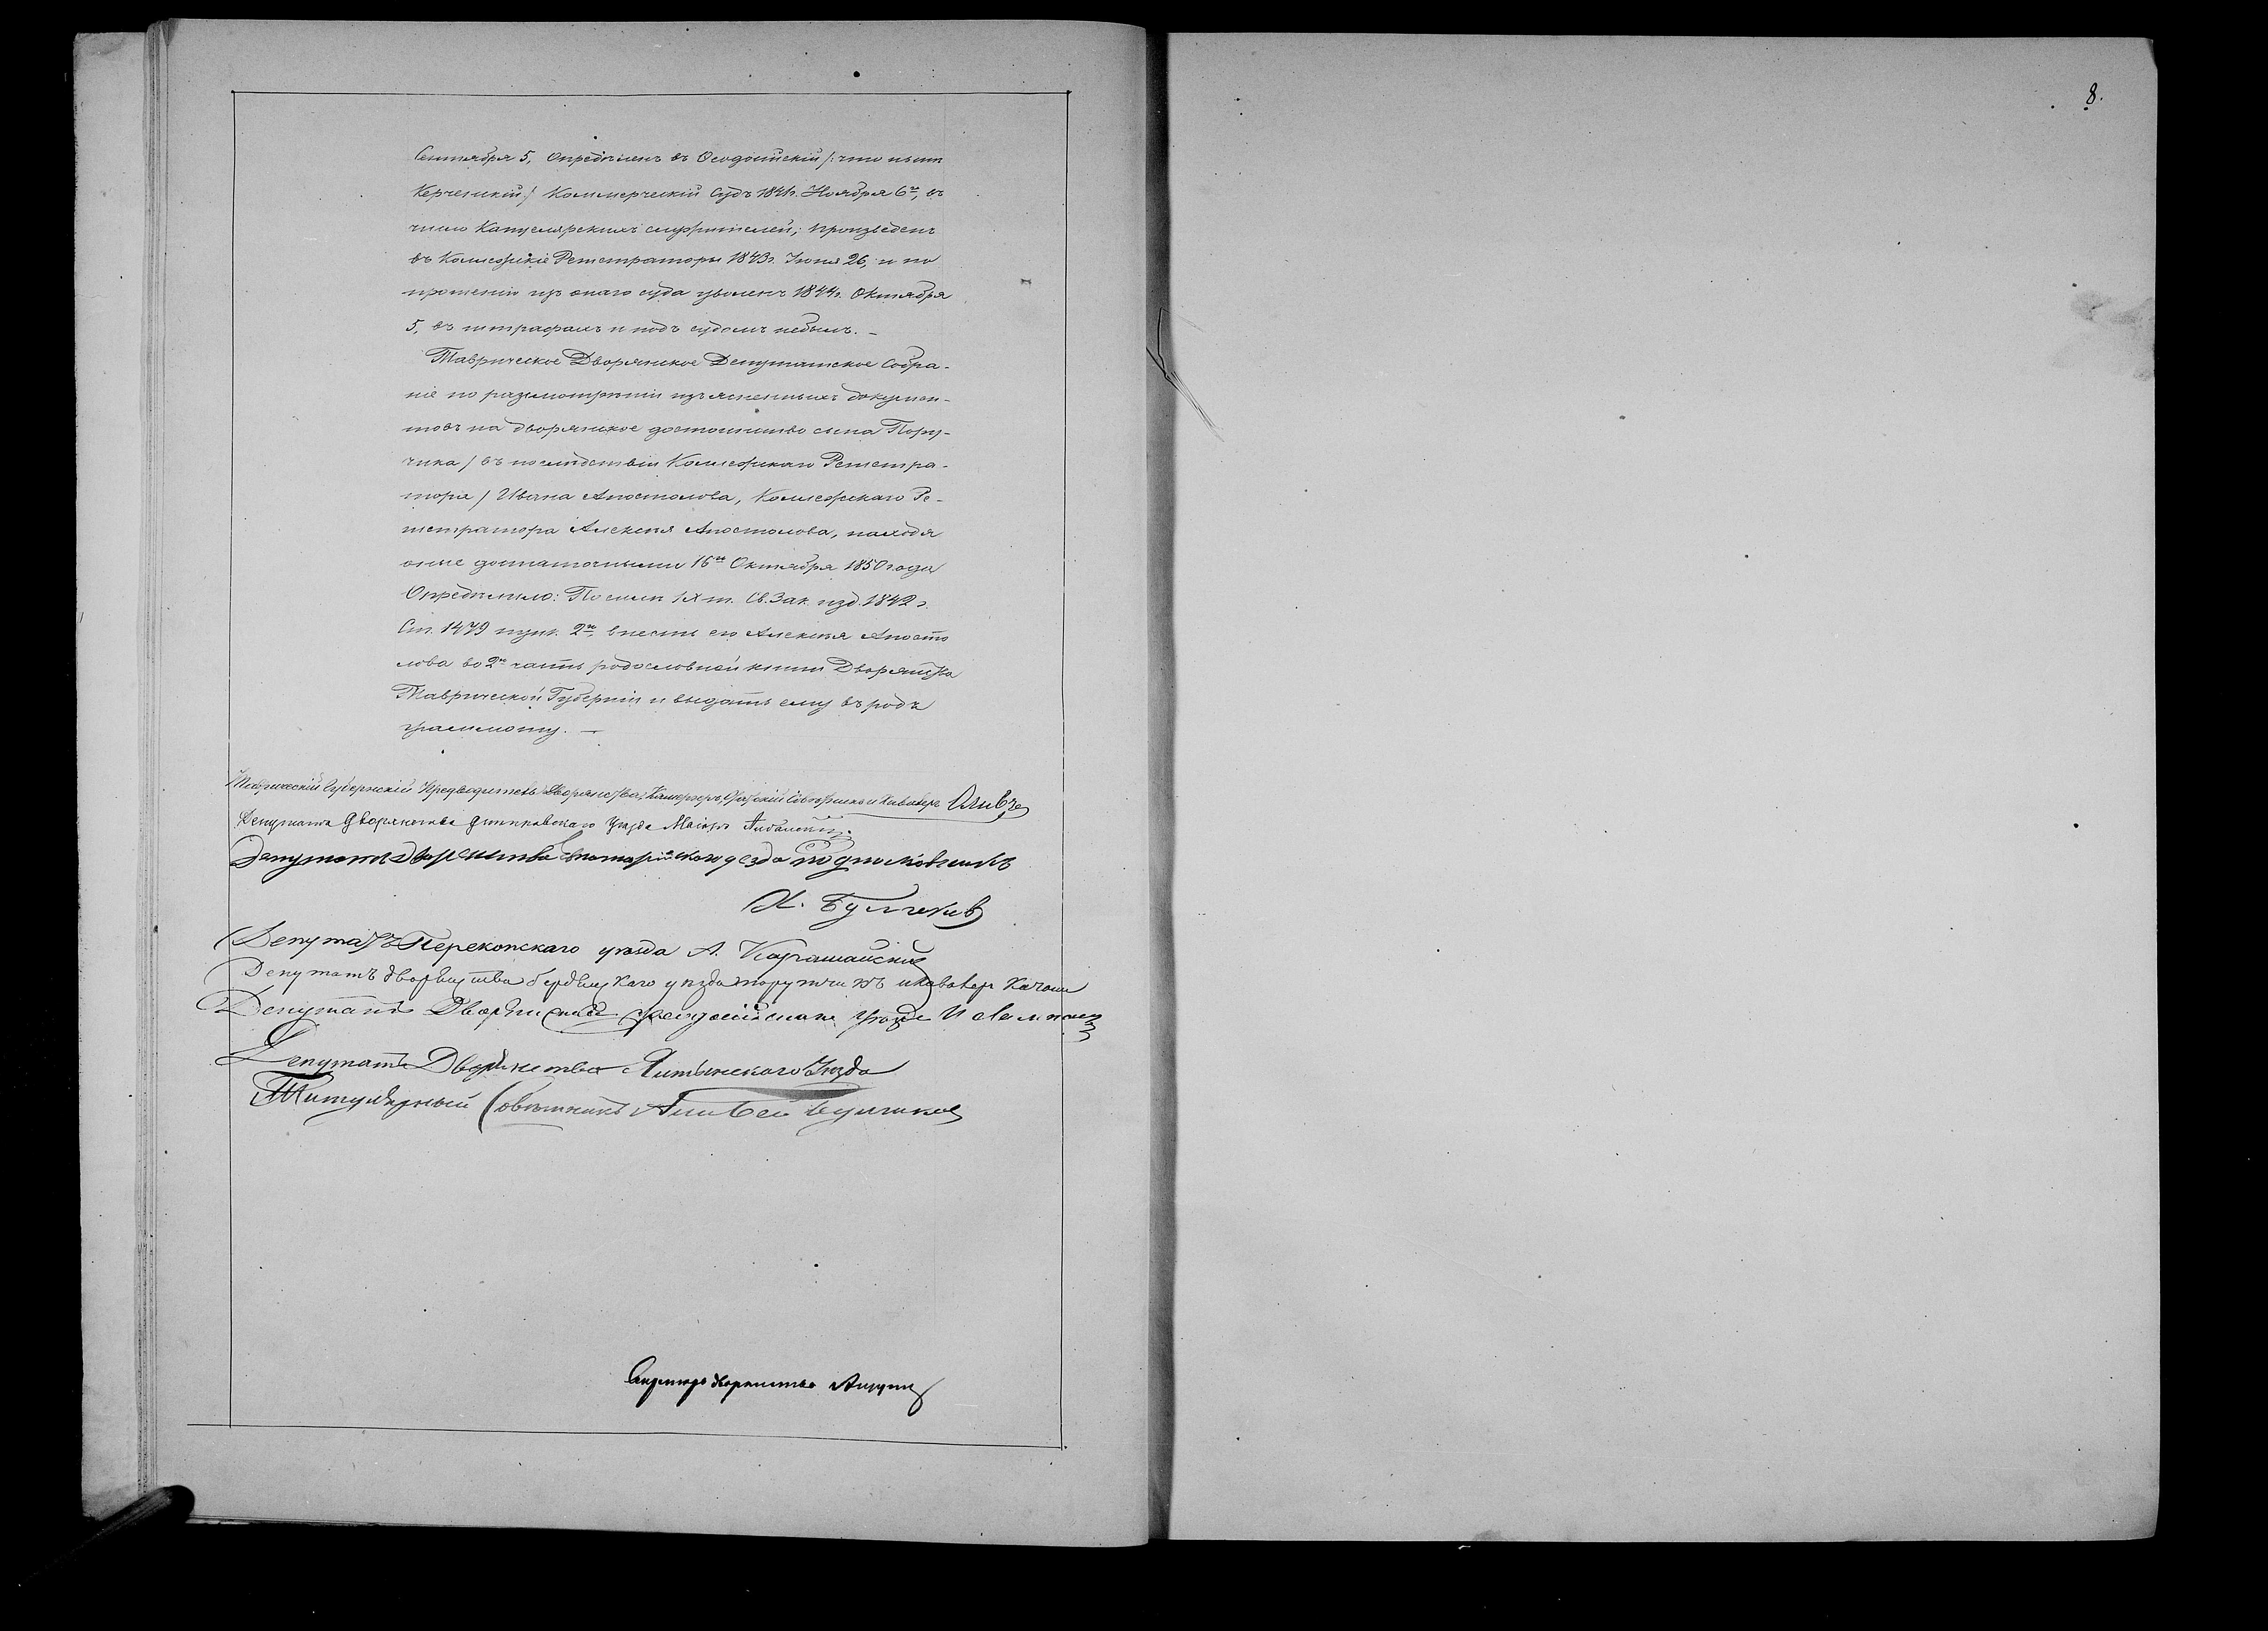 8.
Сентября 5, опредѣленъ въ Ѳеодосійскій /: что нынѣ
Керченскій / Коммерческій Судъ 1841г. Ноября 6го, въ
число Канцелярскихъ служителей; произведенъ
въ Коллежскіе Регистраторы 1843г. Іюня 26, и по
прошенію изъ онаго суда уволенъ 1844г. Октября
5, въ штрафахъ и подъ судомъ небылъ. —
Таврическое Дворянское Депутатское Собра-
ніе по разсмотрѣніи изъясненныхъ докумен-
товъ на дворянское достоинство сына Пору-
чика / въ послѣдствіи Коллежскаго Регистра-
тора / Ивана Апостолова, Коллежскаго Ре-
гистратора Алексѣя Апостолова, находя
оные достаточными 16го Октября 1850 года
Опредѣлило: По силѣ IX т. Св. Зак. изд. 1842 г.
Ст. 1479 пунк. 2го, внесть его Алексѣя Апосто
лова во 2ю часть родословной книги Дворянства
Таврической Губерніи и выдать ему въ родъ
грамоту. —
Таврическій Губернскій Предводитель Дворянства, Камергеръ, Статскій Совѣтникъ и Кавалеръ
Депутатъ Дворянства Днѣпровскаго Уѣзда Маіоръ
Депутатъ Дворянства Евпаторійского уезда подполковникъ
К. Булгаков
Депутатъ Перекопскаго уѣзда А. Карашайскій
Депутатъ дворянства бердянскаго уѣзда поручикъ икавалер Качони
Депутатъ Дворянства Ѳеодосійскаго Уѣзда
Депутатъ Дворянства Ялтинскаго Уѣзда
Титулярный Совѣтникъ Али Бей Булгаков
Секретарь дворянства